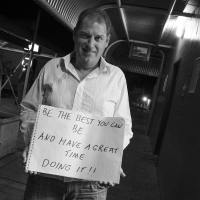 BE THE BEST YOU CAN
BE
AND HAVE A GREAT
TIME
DOING IT!!